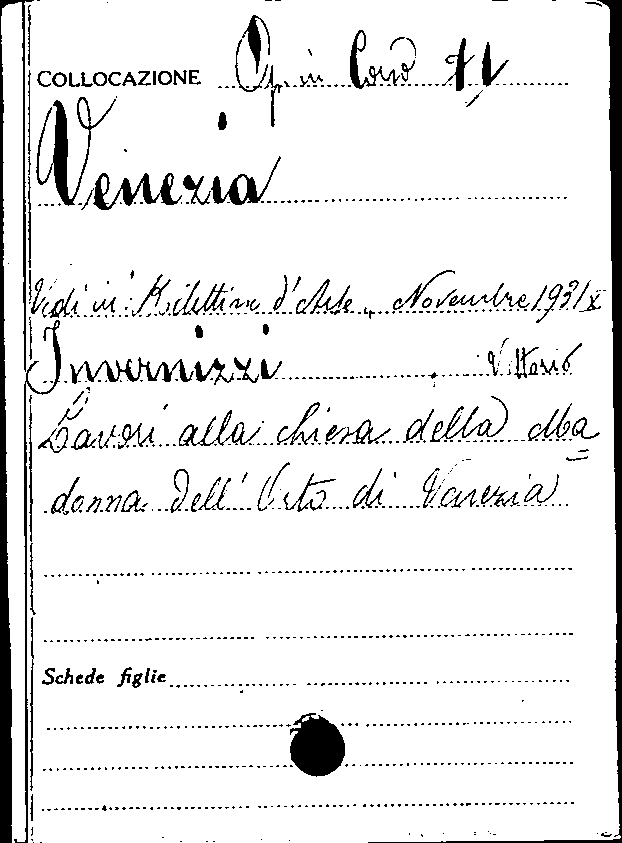 COLLOCAZIONE Op. in Corso
Venezia
Vedi in: Bollettino d'Arte „ Novembre 1931 X
Invernizzi Vittorio
Lavori alla chiesa della Ma=
donna dell' Orto di Venezia
Schede figlie